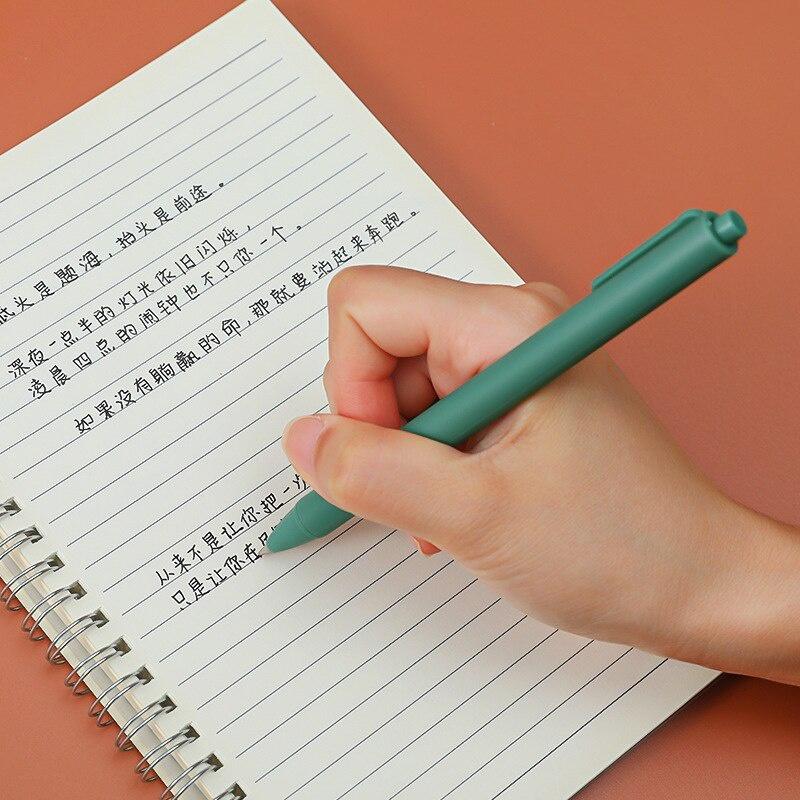 低头是题海,抬头是前途。
深夜一点半的灯光依旧闪烁,
凌晨四点的闹钟也不只你一个。
如果没有躺赢的命,那就要站起来奔跑。
从来不是让你把一
只是让你在